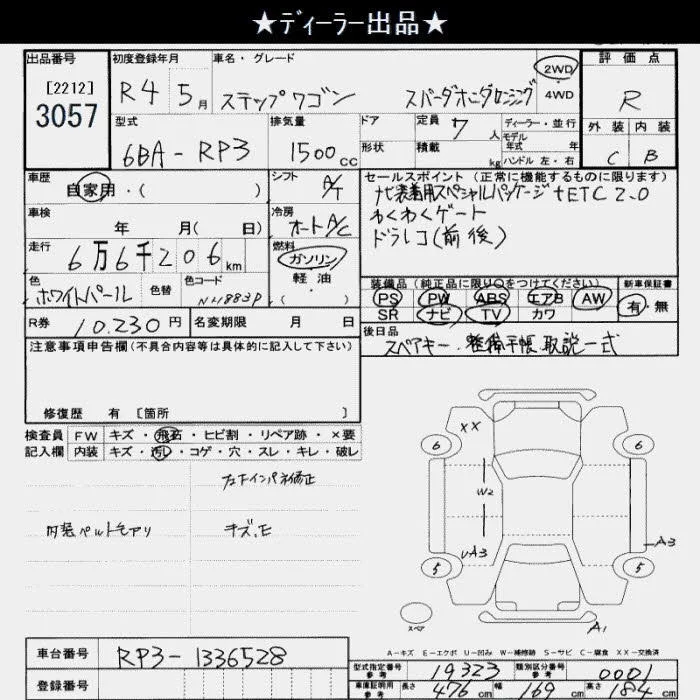 ★ディーラー出品★
出品番号 初度登録年月 車名・グレード 評価点
[2212] R4 5月 ステップワゴン スパーダホンダセンシング 2WD ・ 4WD R
3057 型式 排気量 ドア 定員 7人 ディーラー・並行 外装 内装
モデル年式 年
6BA-RP3 1500cc 形状 積載 kg ハンドル 左・右 C B
車歴 シフト セールスポイント(正常に機能するものに限ります)
自家用・( ) A/T ナビ装着用スペシャルパッケージ+ETC2.0
車検 冷房 わくわくゲート
年 月( 日) オートA/C ドラレコ(前後)
走行 燃料
6万6千206km ガソリン
色 色替 色コード 軽油 装備品(純正品に限り○をつけてください) 新車保証書
ホワイトパール NH883P ( ) PS PW ABS エアB AW 有・無
R券 10.230円 名変期限 月 日 SR ナビ TV カワ
注意事項申告欄(不具合内容等は具体的に記入して下さい) 後日品
スペアキー・整備手帳.取説一式
修復歴 有 [箇所 ]
検査員 FW キズ・飛石・ヒビ割・リペア跡・×要
記入欄 内装 キズ・汚れ・コゲ・穴・スレ・キレ・破レ
XX
6 6
W2
A3 A3
5 5
スペア A1
A-キズ E-エクボ U-凹み W-補修跡 S-サビ C-腐食 XX-交換済
車台番号 RP3-1336528 型式指定番号 参考 19323 類別区分番号 参考 0001
登録番号 車庫証明用 参考 長さ 476cm 幅 169cm 高さ 184cm